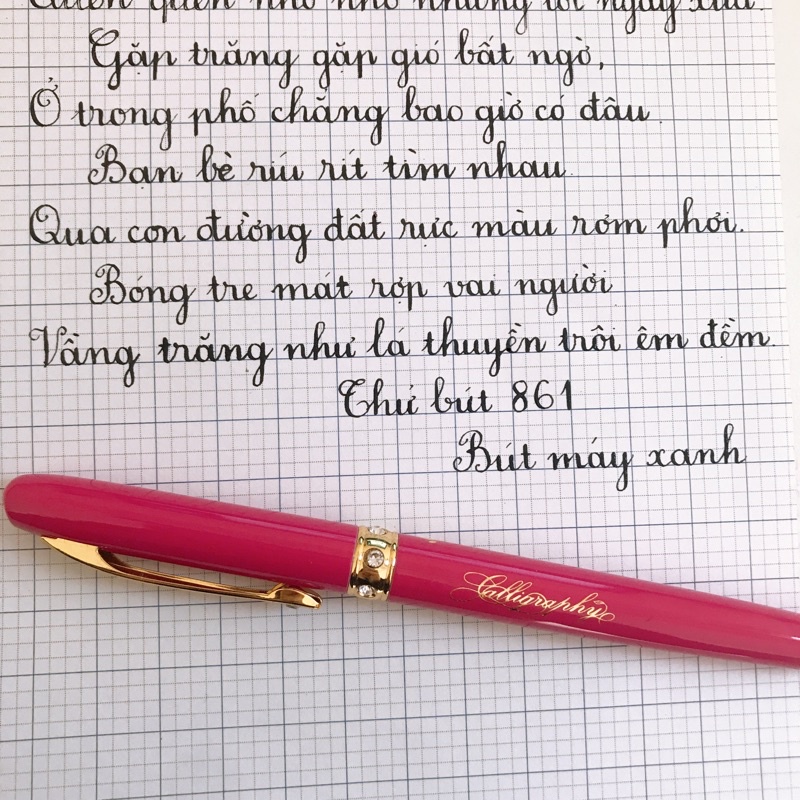 quên nhớ nhớ những lời ngày xưa.
Gặp trăng gặp gió bất ngờ,
Ở trong phố chẳng bao giờ có đâu.
Bạn bè ríu rít tìm nhau
Qua con đường đất rực màu rơm phơi.
Bóng tre mát rợp vai người
Vầng trăng như lá thuyền trôi êm đềm.
Thử bút 861
Bút máy xanh
Calligraphy